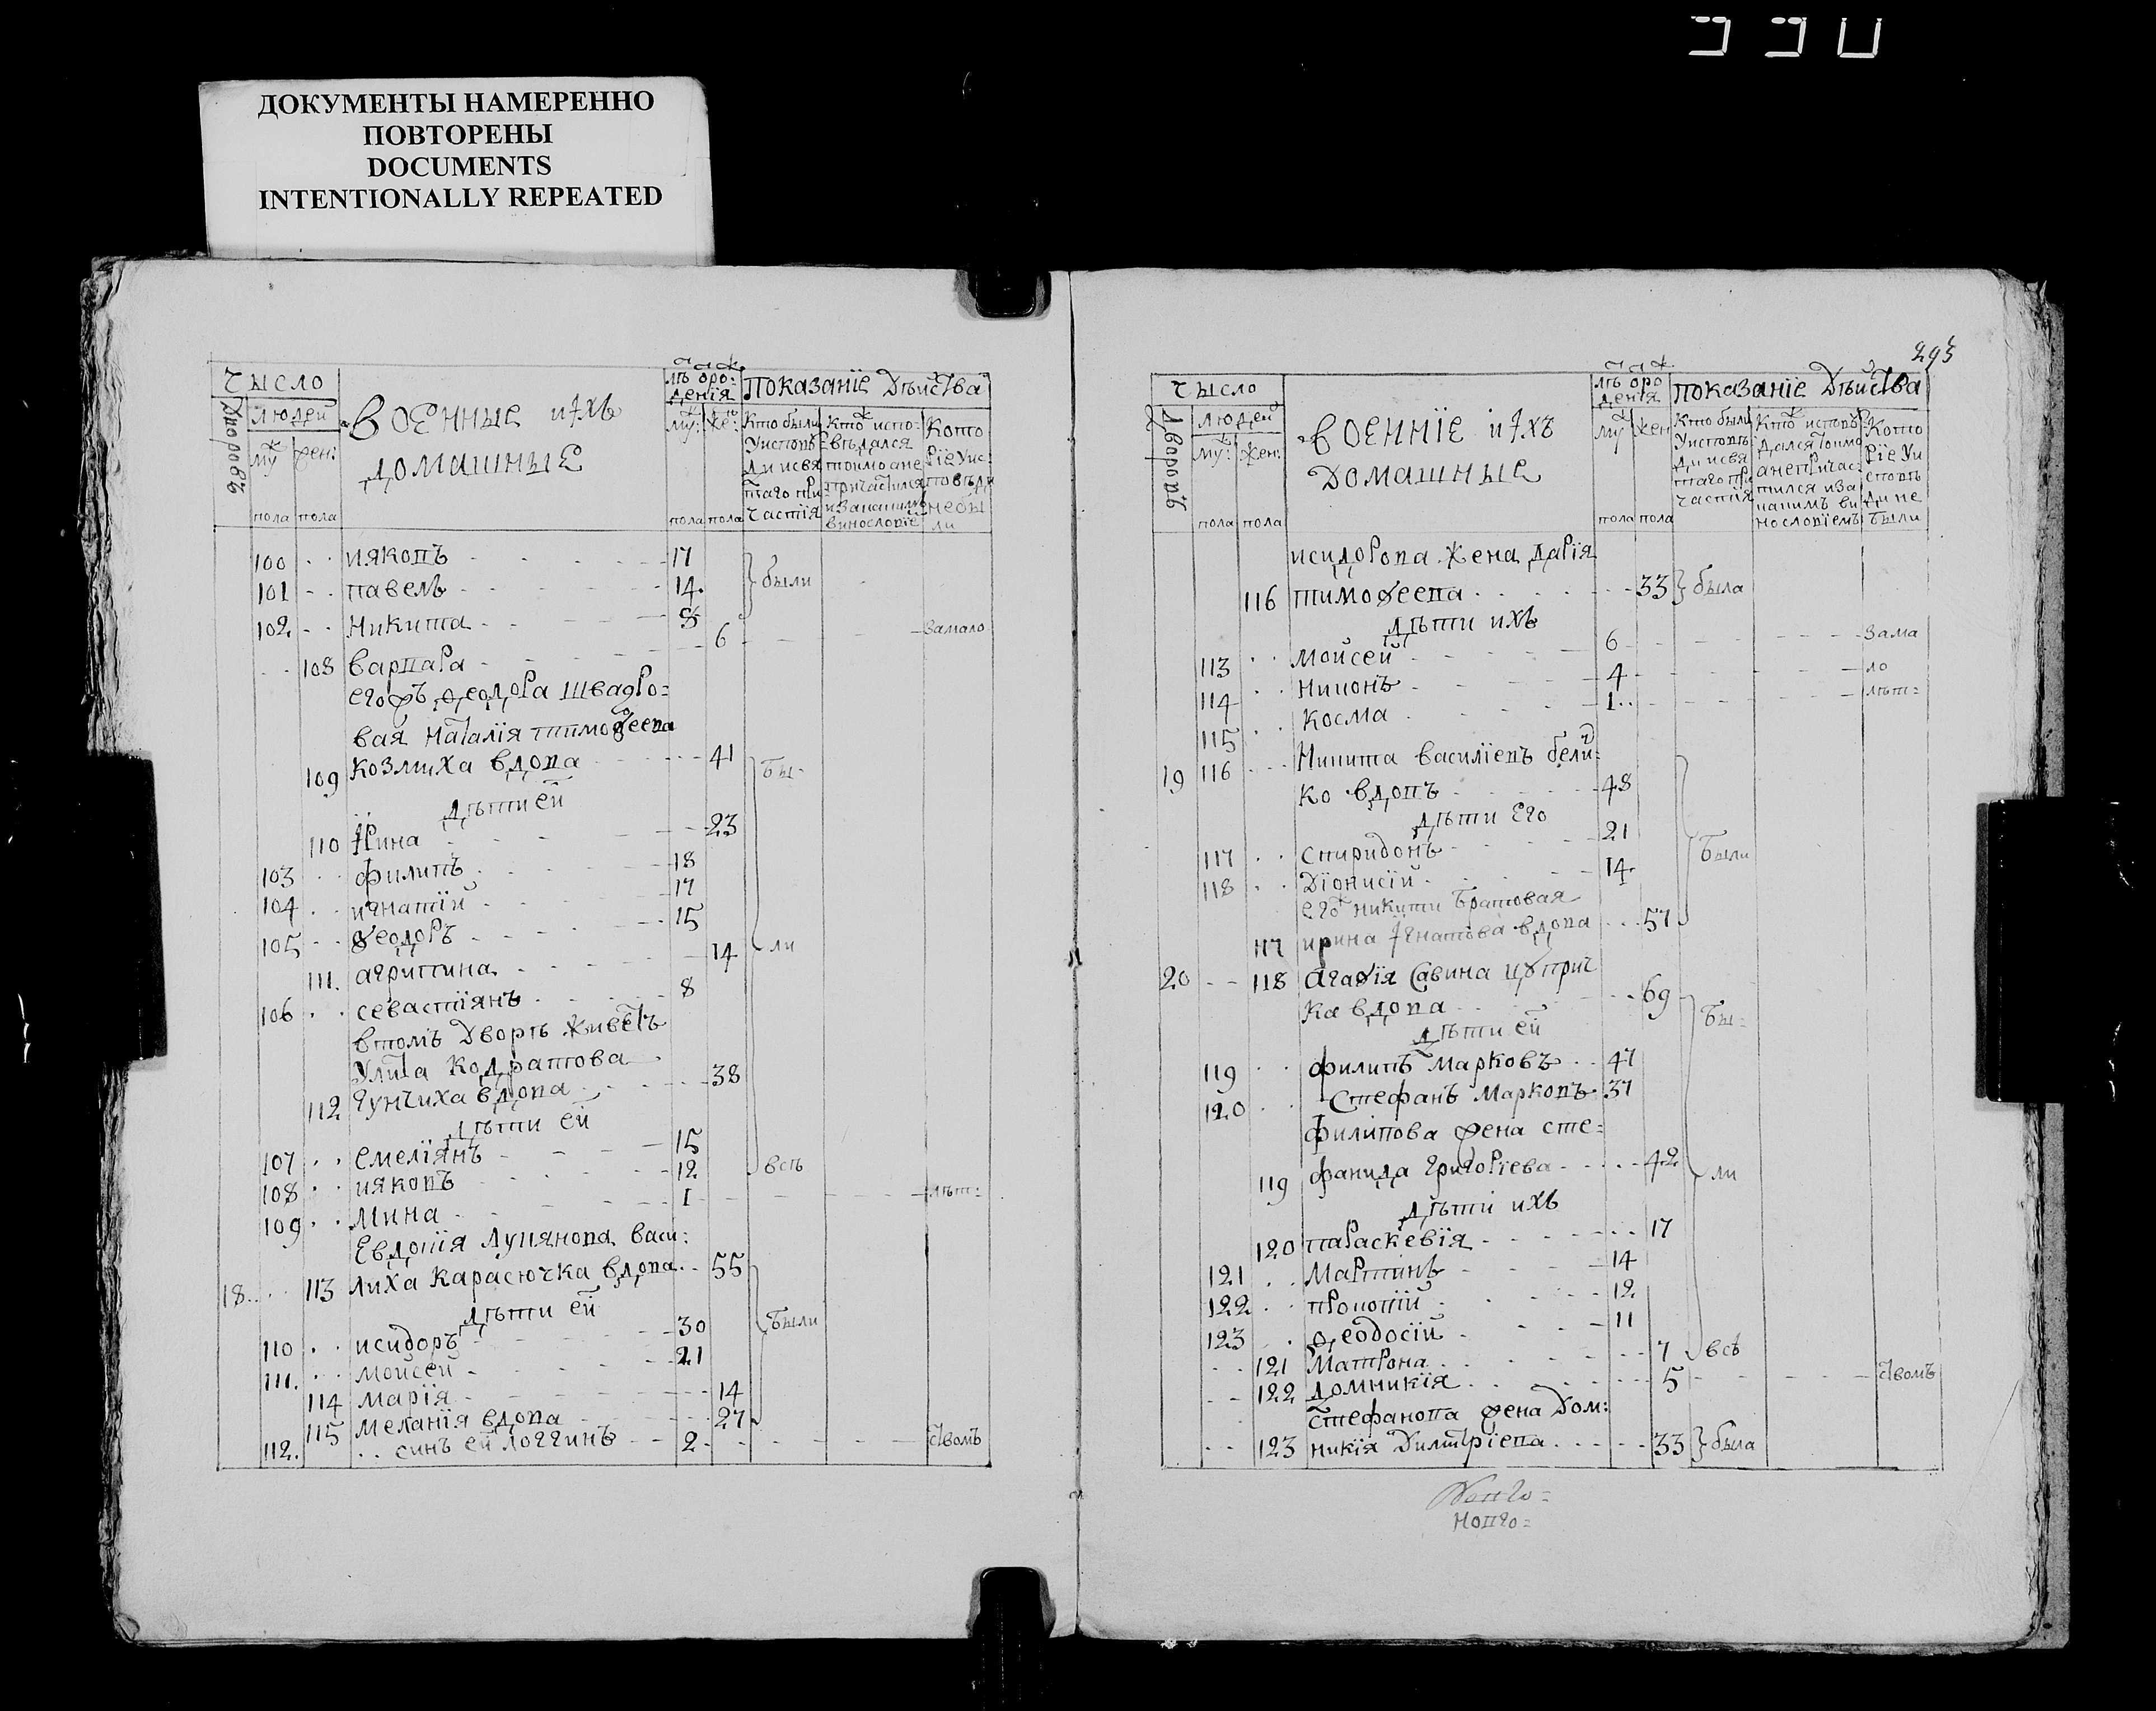 990
ДОКУМЕНТЫ НАМЕРЕННО
ПОВТОРЕНЫ
DOCUMENTS
INTENTIONALLY REPEATED
Чысло
Дворовъ
Людей
му: пола
жен: пола
Военные ихъ
домашные
лѣ оро:
денїя
му: пола
же: пола
показанїе Дѣйства
Кто были
Уисповѣ
ди исвя
таго при
частїя
Кто испо:
вѣдался
токмо ане
причастился
Кото
рїе Уис:
повѣди
небы
ли
100 . . иякопъ 17 были
101 - - павелъ 14.
102 - - Никита 8
- - 108 варвара 6 замало
его ѳеодора швадро:
вая Наталїя тимоѳеева
109 козлиха вдова 41 бы-
дѣти ей
110 Нина 23
103 . . филипъ 18
104 . . игнатїй 17
105 - - ѳеодоръ 15
111. агрипина 14 ли
106 . . севастїянъ 8
втомъ Дворѣ живетъ
Улита Кодратова
112 Чунчиха вдова 38
дѣти ей
107 . . Емелїянъ 15
108 . . иякопъ 12 всѣ
109 . . Мина 1 лѣт:
Евдокїя Лукянова васи:
18. . . 113 лиха Карасючка вдова 55
дѣти ей
110 . . исидоръ 30 были
111. . . моисей 21
114 Марїя 14
115 меланїя вдова 27
112. . . синъ ей логгинъ 2. ством
295
Чысло
Дворовъ
людей
му: пола
жен: пола
Военнїе ихъ
Домашные
лѣ оро
денїя
му пола
жен пола
показанїе Дѣйства
Кто были
Уисповѣ
ди исвя
таго при
частїя
Кто исповѣ
дался токмо
анепричас:
тился иза
нослорїемъ
Кото
рїе Уи
сповѣ
ди не
были
исидорова жена дарїя
116 тимоѳеева 33 была
дѣти ихъ
113 . . моисей 6 зама
114 . . Никонъ 4 ло
115 . . Косма 1 . . лѣт:
19 116 Никита василїевъ бели:
ко вдовъ 48
дѣти Его
117 . . спиридонъ 21 были
118 . . Дїонисїй 14.
его никити братовая
117 ирина Игнатова вдова 57
20 - - 118 Агаѳїя Савина
ка вдова 69 бы-
дѣти ей
119 . . филипъ Марковъ . . 47
120 . . Стефанъ Марковъ 37
филипова жена сте:
119 фанида григорїева 42 ли
дѣти ихъ
120 параскевїя 17
121 . . Мартинъ 14
122 . . прокопїй 12
123 . ѳеодосїй 11
- - 121 Матрона 7 всѣ
- - 122 домникїя 5 ством
стефанова жена Дом:
- - 123 никїя Димитрїева 33 была